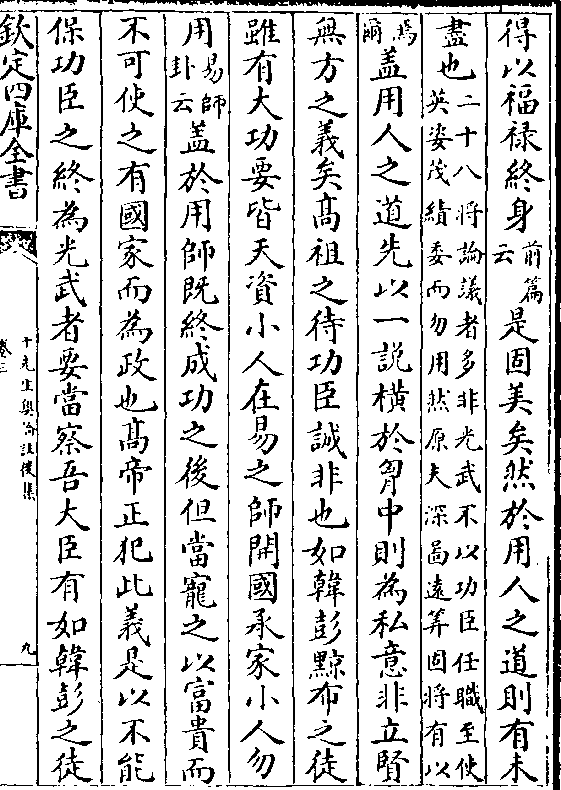 得以福禄終身前篇云是固美矣然於用人之道則有未
盡也二十八将論議者多非光武不以功臣任職至使英姿茂績委而勿用然原夫深啚遠筭固将有以
焉爾盖用人之道先以一說橫於胷中則為私意非立賢
無方之義矣髙祖之待功臣誠非也如韓彭黥布之徒
雖有大功要皆天資小人在易之師開國承家小人勿
用易師卦云盖於用師既終成功之後但當寵之以富貴而
不可使之有國家而為政也髙帝正犯此義是以不能
保功臣之終為光武者要當察吾大臣有如韓彭之徒
欽定四庫全書
卷三
十先生奧論註後集
九